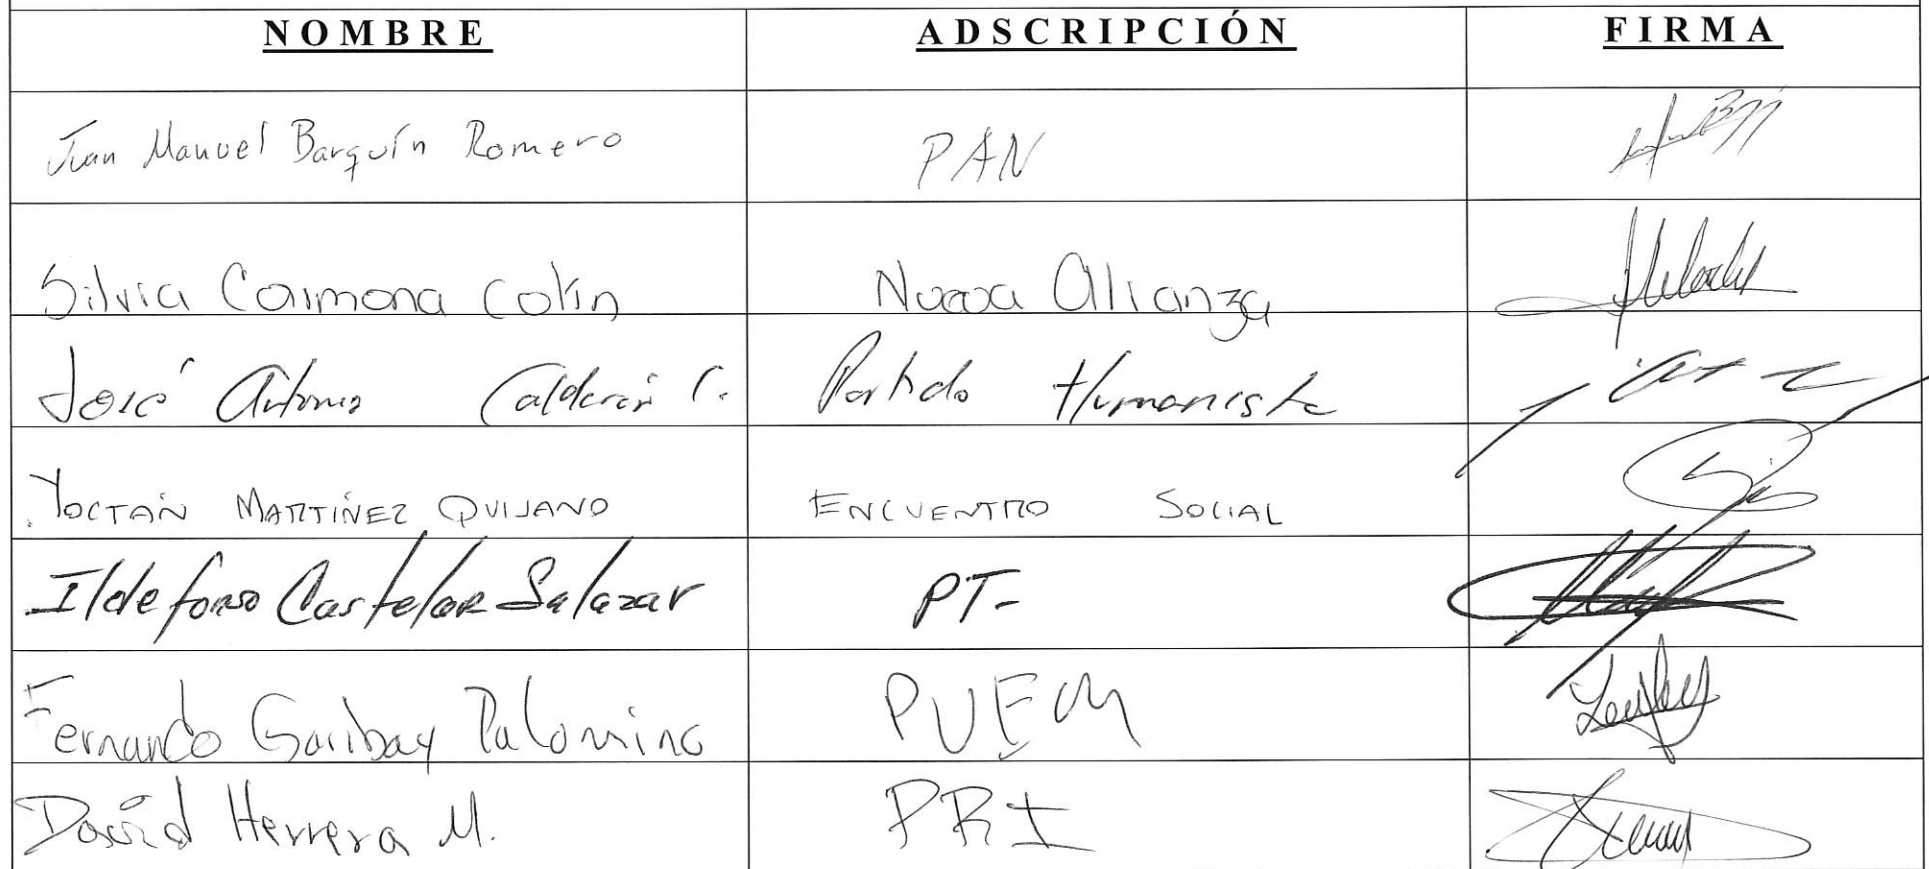 NOMBRE ADSCRIPCIÓN FIRMA
Juan Manuel Barquín Romero PAN
Silvia Carmona Colín Nueva Alianza
José Antonio Calderón C. Partido Humanista
Yoctán Martínez Quijano Encuentro Social
Ildefonso Castelar Salazar PT-
Fernando Garibay Palomino PVEM
David Herrera M. PRI